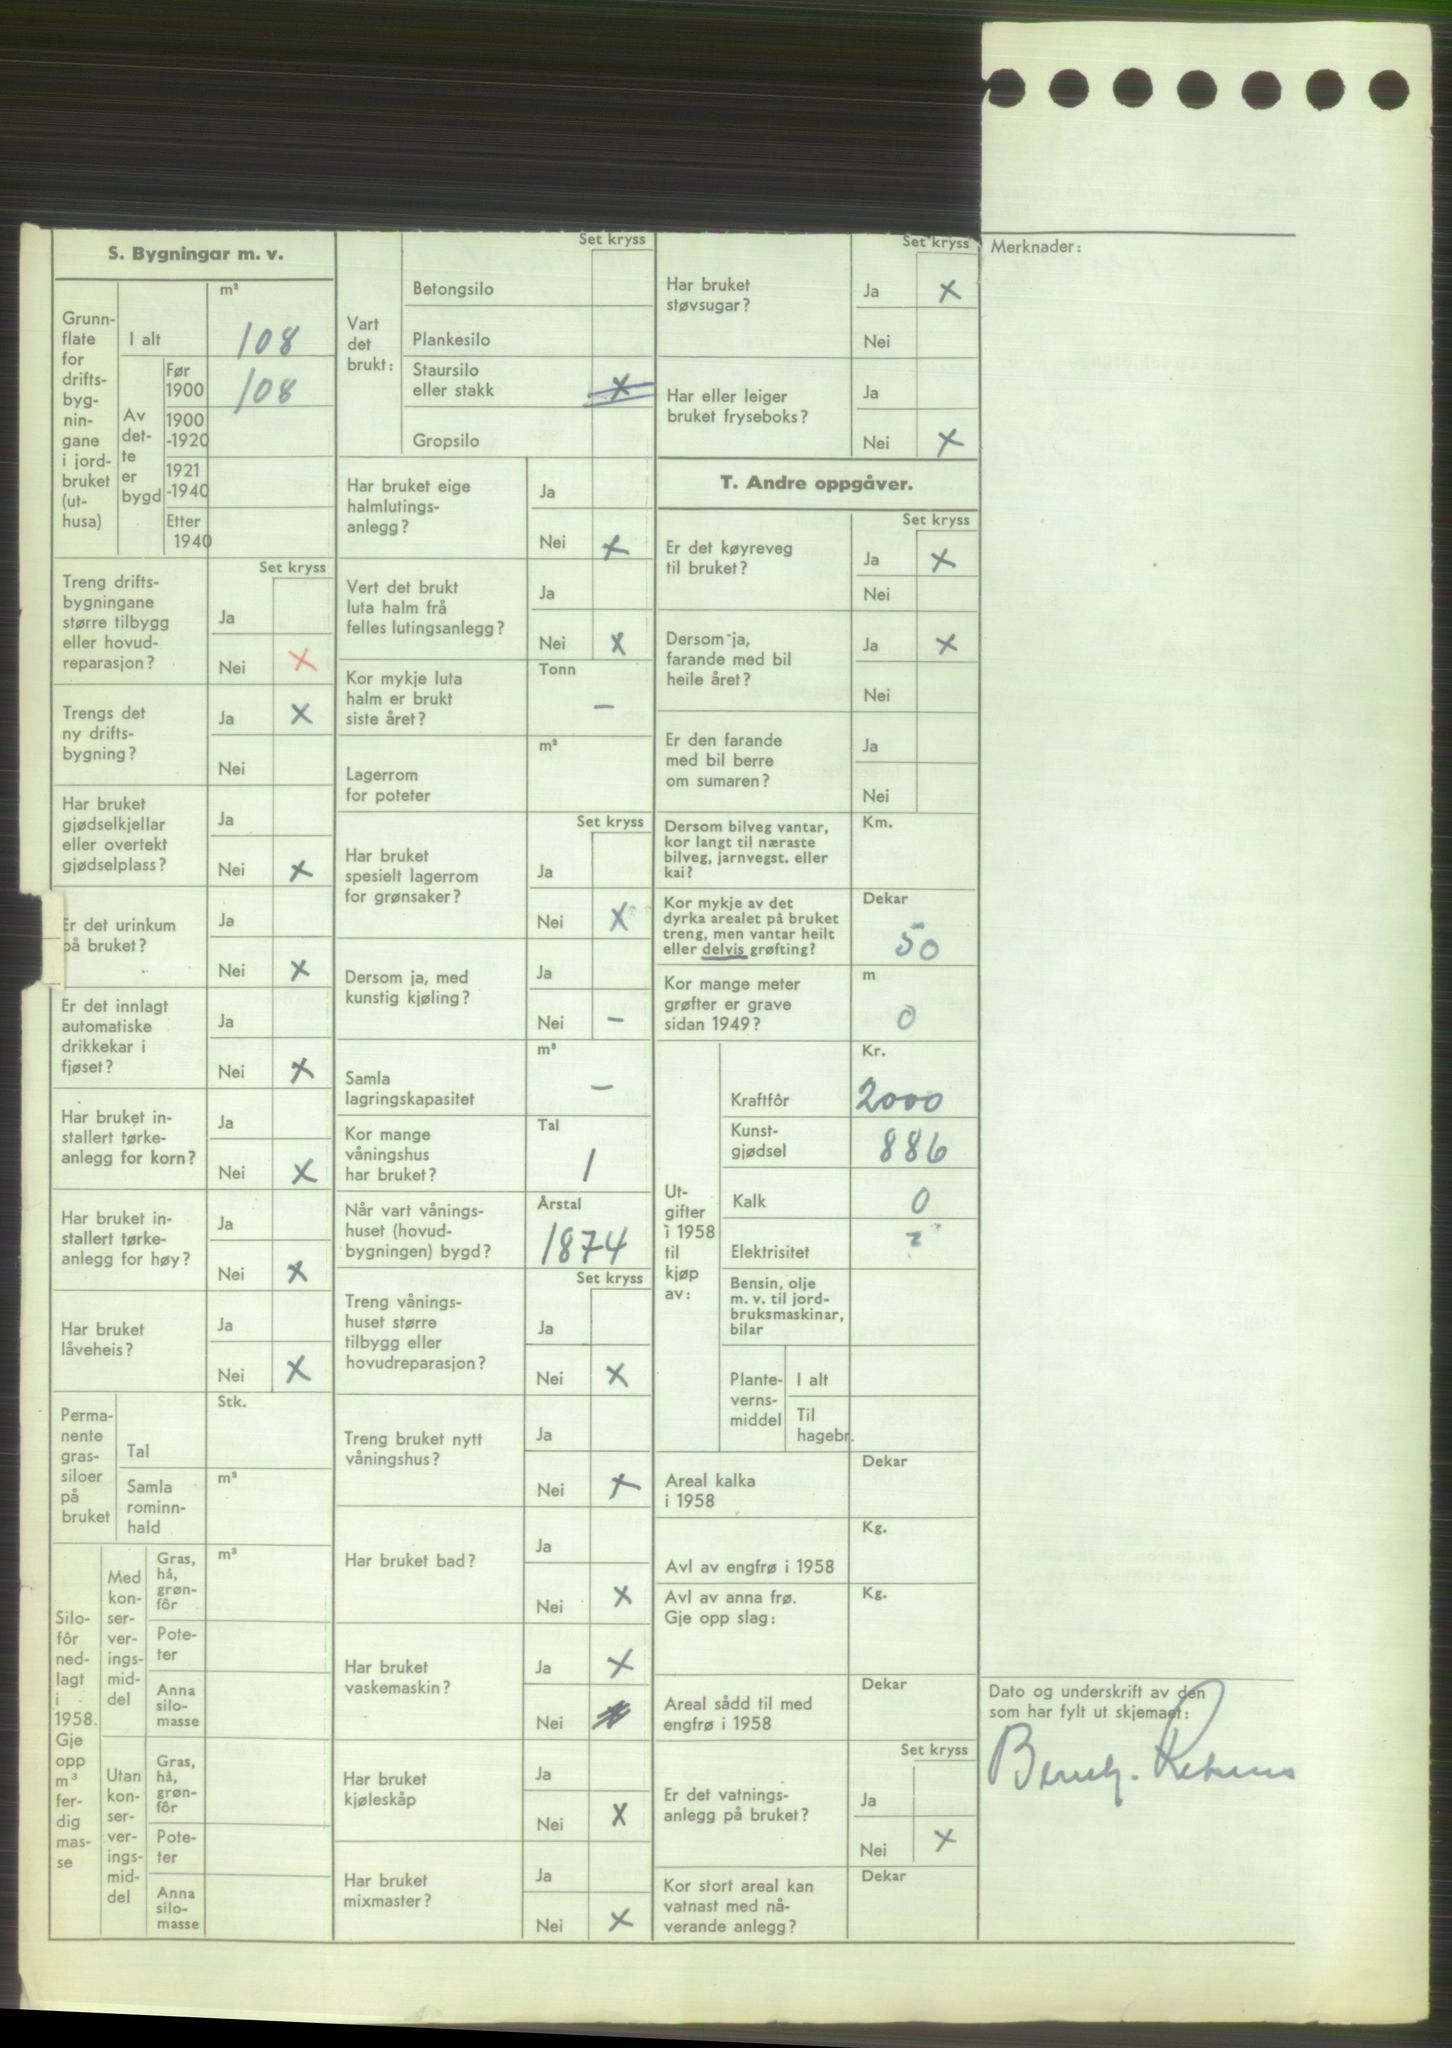 S. Bygningar m. v.
Grunn-
flate
for
drifts-
byg-
nin-
gane
i jord-
bruket
(ut-
husa)
m²
I alt
108
Av
det-
te
er
bygd
Før
1900
108
1900
-1920
1921
-1940
Etter
1940
Set kryss
Treng drifts-
bygningane
større tilbygg
eller hovud-
reparasjon?
Ja
Nei X
Trengs det
ny drifts-
bygning?
Ja X
Nei
Har bruket
gjødselkjellar
eller overtekt
gjødselplass?
Ja
Nei X
Er det urinkum
på bruket?
Ja
Nei X
Er det innlagt
automatiske
drikkekar i
fjøset?
Ja
Nei X
Har bruket in-
stallert tørke-
anlegg for korn?
Ja
Nei X
Har bruket in-
stallert tørke-
anlegg for høy?
Ja
Nei X
Har bruket
låveheis?
Ja
Nei X
Perma-
nente
gras-
siloer
på
bruket
Stk.
Tal
Samla
rominn-
hald
m³
Silo-
fôr
ned-
lagt
i
1958.
Gje
opp
m³
fer-
dig
mas-
se
Med
kon-
ser-
ver-
ings-
mid-
del
m³
Gras,
hå,
grøn-
fôr
Pote-
ter
Anna
silo-
masse
Utan
kon-
ser-
ver-
ings-
mid-
del
Gras,
hå,
grøn-
fôr
Pote-
ter
Anna
silo-
masse
Set kryss
Vart
det
brukt:
Betongsilo
Plankesilo
Staursilo
eller stakk X
Gropsilo
Har bruket eige
halmlutings-
anlegg?
Ja
Nei X
Vert det brukt
luta halm frå
felles lutingsanlegg?
Ja
Nei X
Kor mykje luta
halm er brukt
siste året?
Tonn
–
Lagerrom
for poteter
m²
Set kryss
Har bruket
spesielt lagerrom
for grønsaker?
Ja
Nei X
Dersom ja, med
kunstig kjøling?
Ja
Nei –
Samla
lagringskapasitet
m³
–
Kor mange
våningshus
har bruket?
Tal
1
Når vart vånings-
huset (hovud-
bygningen) bygd?
Årstal
1874
Set kryss
Treng vånings-
huset større
tilbygg eller
hovudreparasjon?
Ja
Nei X
Treng bruket nytt
våningshus?
Ja
Nei X
Har bruket bad?
Ja
Nei X
Har bruket
vaskemaskin?
Ja X
Nei
Har bruket
kjøleskåp
Ja
Nei X
Har bruket
mixmaster?
Ja
Nei X
Set kryss
Har bruket
støvsugar?
Ja X
Nei
Har eller leiger
bruket fryseboks?
Ja
Nei X
T. Andre oppgåver.
Set kryss
Er det køyreveg
til bruket?
Ja X
Nei
Dersom ja,
farande med bil
heile året?
Ja X
Nei
Er den farande
med bil berre
om sumaren?
Ja
Nei
Dersom bilveg vantar,
kor langt til næraste
bilveg, jarnvegst. eller
kai?
Km.
Kor mykje av det
dyrka arealet på bruket
treng, men vantar heilt
eller delvis grøfting?
Dekar
50
Kor mange meter
grøfter er grave
sidan 1949?
m
0
Ut-
gifter
i 1958
til
kjøp
av:
Kr.
Kraftfôr 2000
Kunst-
gjødsel 886
Kalk 0
Elektrisitet ?
Bensin, olje
m. v. til jord-
bruksmaskinar,
bilar
Plante-
verns-
middel
I alt
Til
hagebr.
Areal kalka
i 1958
Dekar
Avl av engfrø i 1958
Kg.
Avl av anna frø.
Gje opp slag:
Kg.
Areal sådd til med
engfrø i 1958
Dekar
Set kryss
Er det vatnings-
anlegg på bruket?
Ja
Nei X
Kor stort areal kan
vatnast med nå-
verande anlegg?
Dekar
Merknader:
Dato og underskrift av den
som har fylt ut skjemaet: